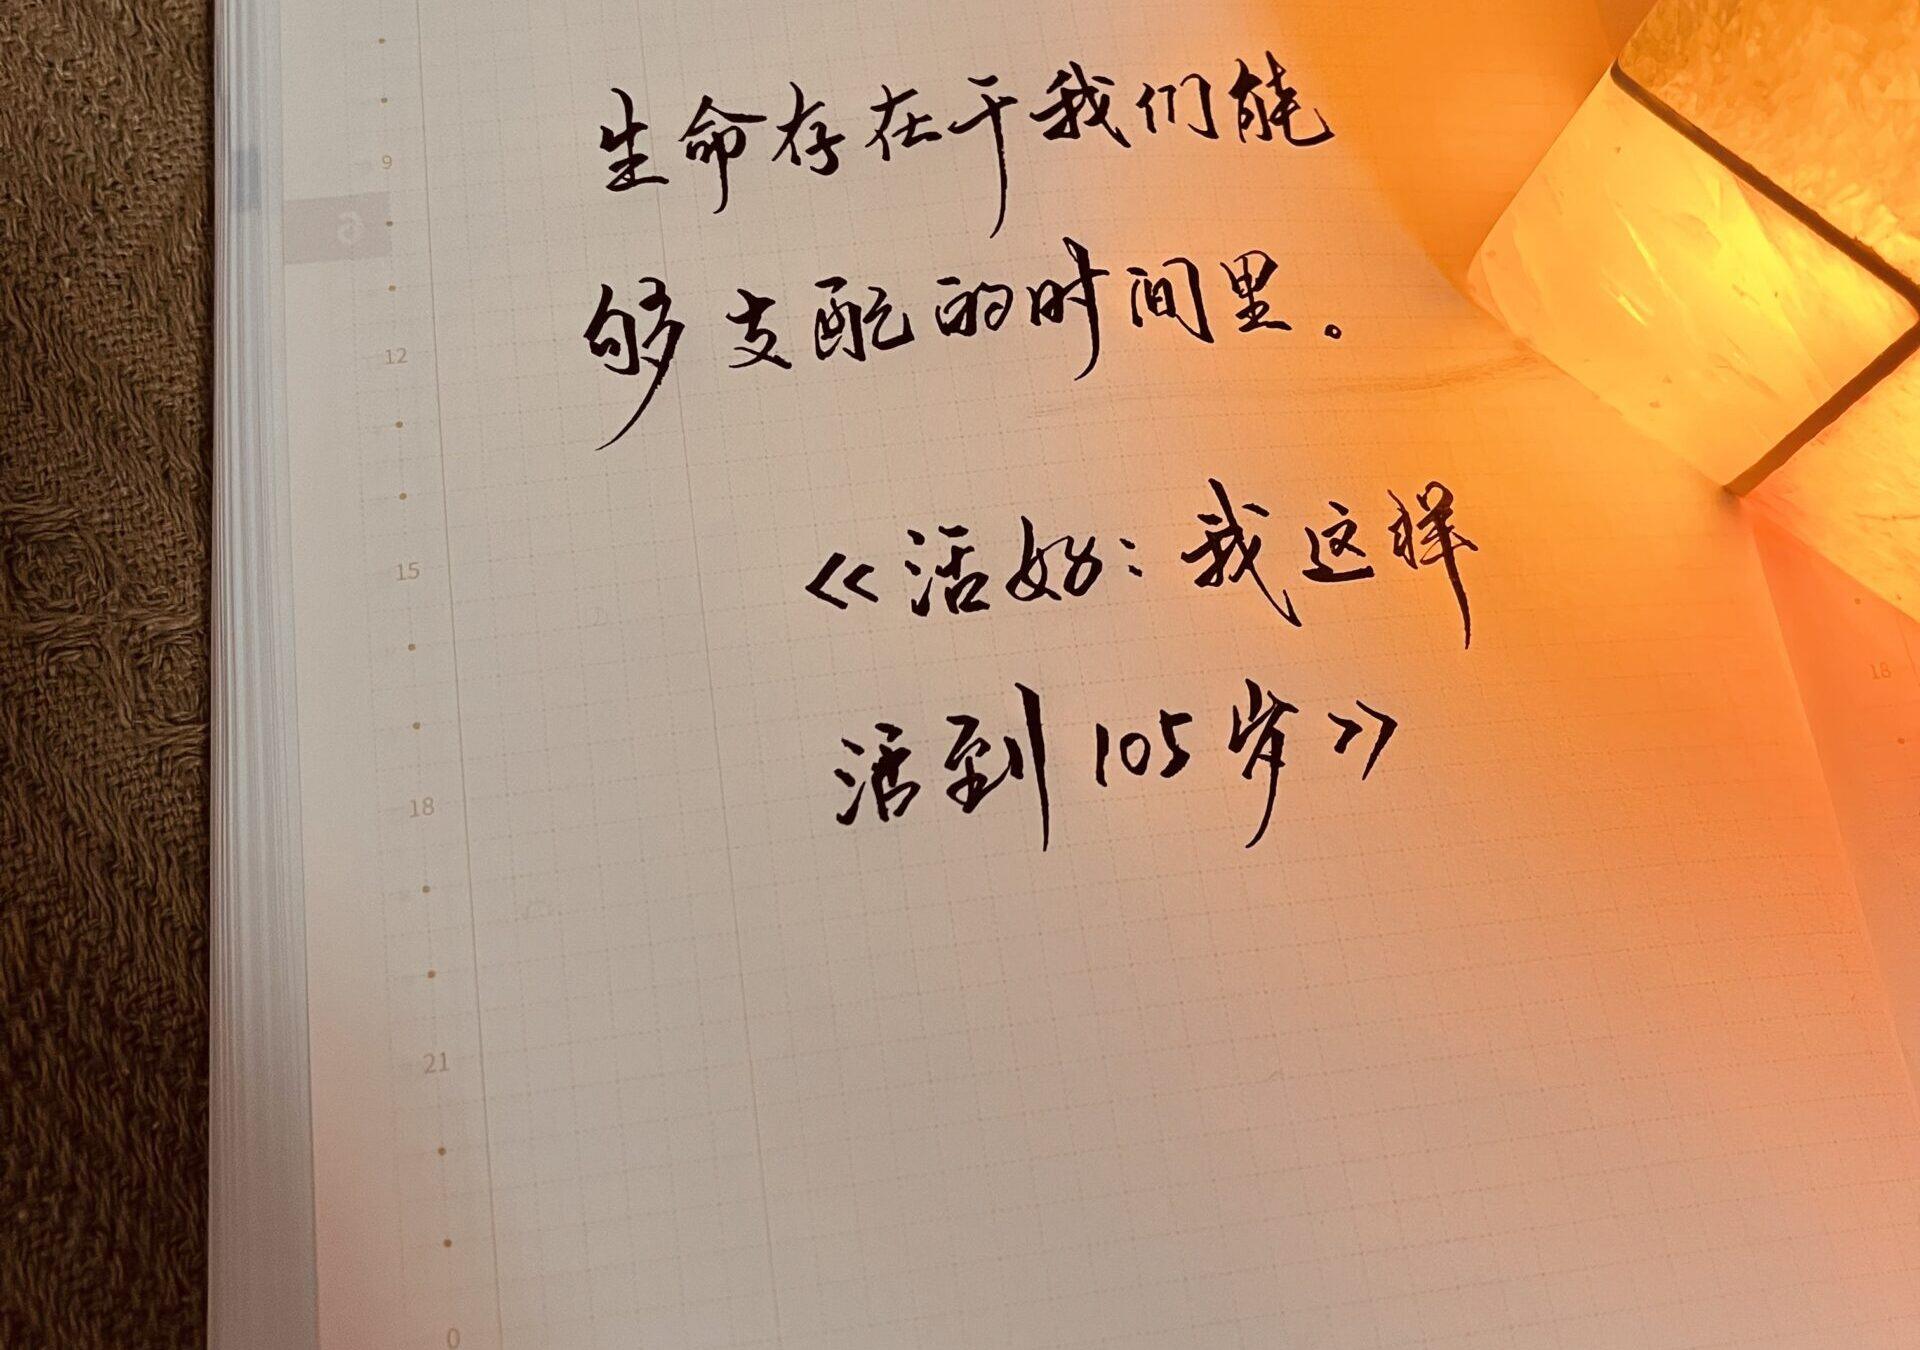 生命存在于我们能
够支配的时间里。
《活好：我这样
活到105岁》
6
9
12
15
18
21
0
18